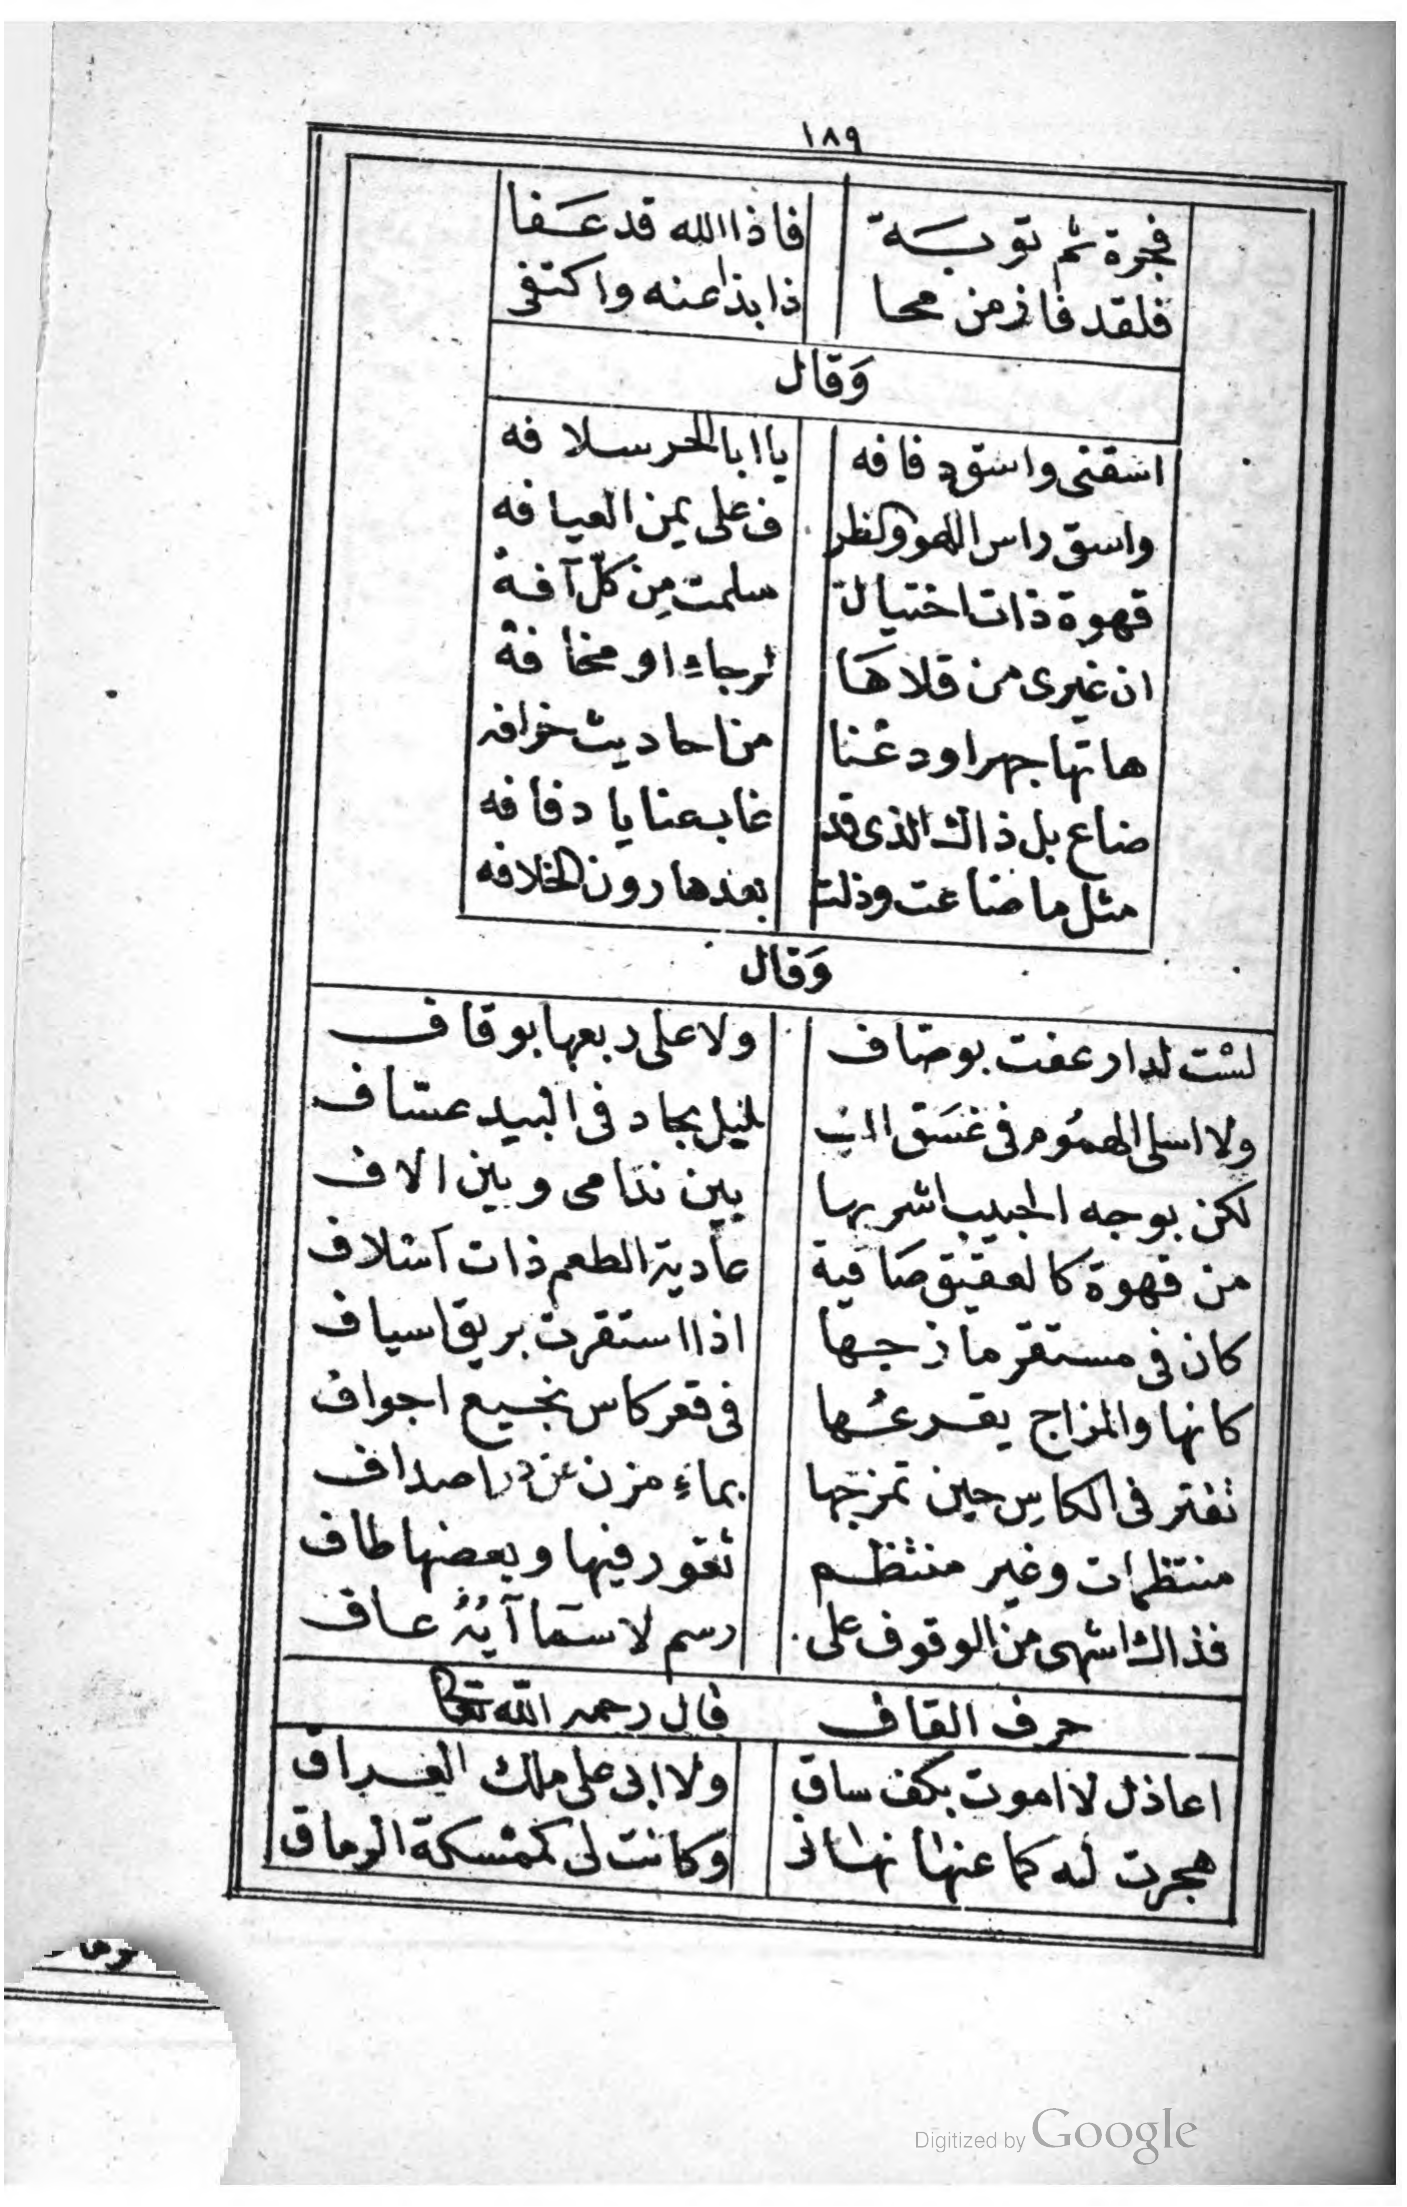 ١٨٩
فجرة ثم توبـــة فاذا الله قد عـــفا
فلقد فاز من محا ذا بذا عنه واكتفى
وَقال
اسقنى واسق دفافه يا ابا الحر سلافه
واسق راس اللهو والظر ف على يمن العيافه
قهوة ذات اختيال سلمت مِن كلّ آفة
ان غيرى من قلاهَا لرجاءِ او مخافة
هاتها جهرا ودعنا من احاديث خرافه
ضاع بل ذاك الذى قد غاب عنا يا دفافه
مثل ما ضاعت وذلت بعد هارون الخلافه
وَقال
لست لدار عفت بوصاف ولا على ربعها بوقاف
ولا اسلى الهمُوم فى غسَق الليل بجاد فى البيد عسّاف
لكن بوجه الحبيب اشربها بين ندامى وبين الاف
من قهوة كالعقيق صَافية عادية الطعم ذات اسلاف
كان فى مستقر مازجها اذا استقرت بريق اسياف
كانها والمزاج يقـرعُـها فى قعر كاس نجـيع اجواف
تفتر فى الكاسِ حين تمزجها بماءِ مزن عن در اصداف
منتظمات وغير منتظـم تغور فيها وبعضها طاف
فذاك اشهى من الوقوف على رسم لاسمآ آيُهُ عـاف
حرف القاف قال رحمه الله تعالى
اعاذل لا اموت بكف ساق ولا ابى على ملك العـراق
هجرت له كما عنها نهانى وكانت لى كمسكة الرماق
Digitized by Google